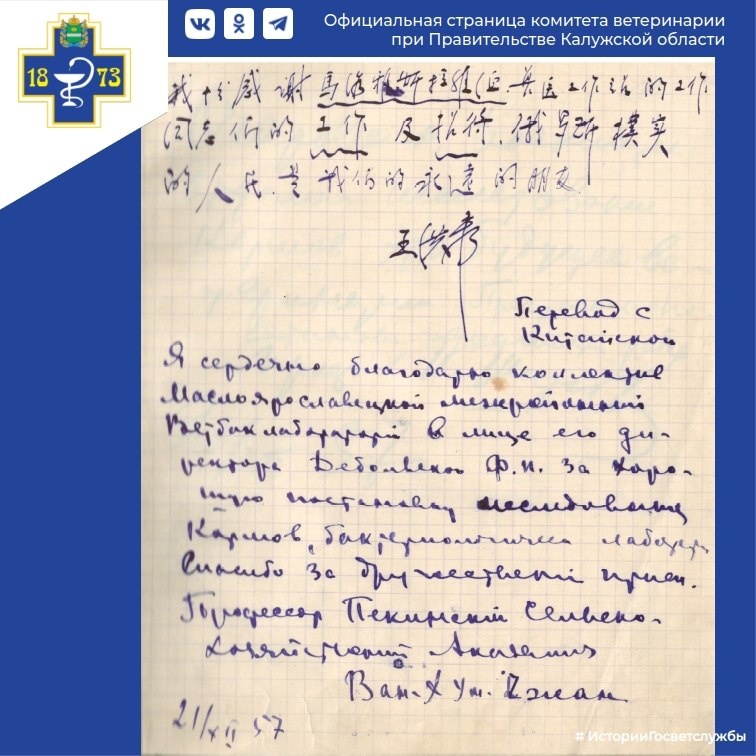 Официальная страница комитета ветеринарии
при Правительстве Калужской области
18 73
我十分感谢马洛雅斯拉维 工作 的工作
同志们的工作及招待.俄罗斯朴实
的人民.是我们的永远的朋友
王洪章
Перевод с
Китайской
Я сердечно благодарю коллектив
Малоярославецкой межрайонной
Ветбаклаборатории в лице его ди-
ректора Ф.И. за хоро-
шую постановку исследования
Кормов, бактериологическ
Спасибо за дружественный прием.
Профессор Пекинской Сельско-
хозяйственной Академии
Ван-Хун-Чжан
21/XII 57
# ИсторииГосветслужбы